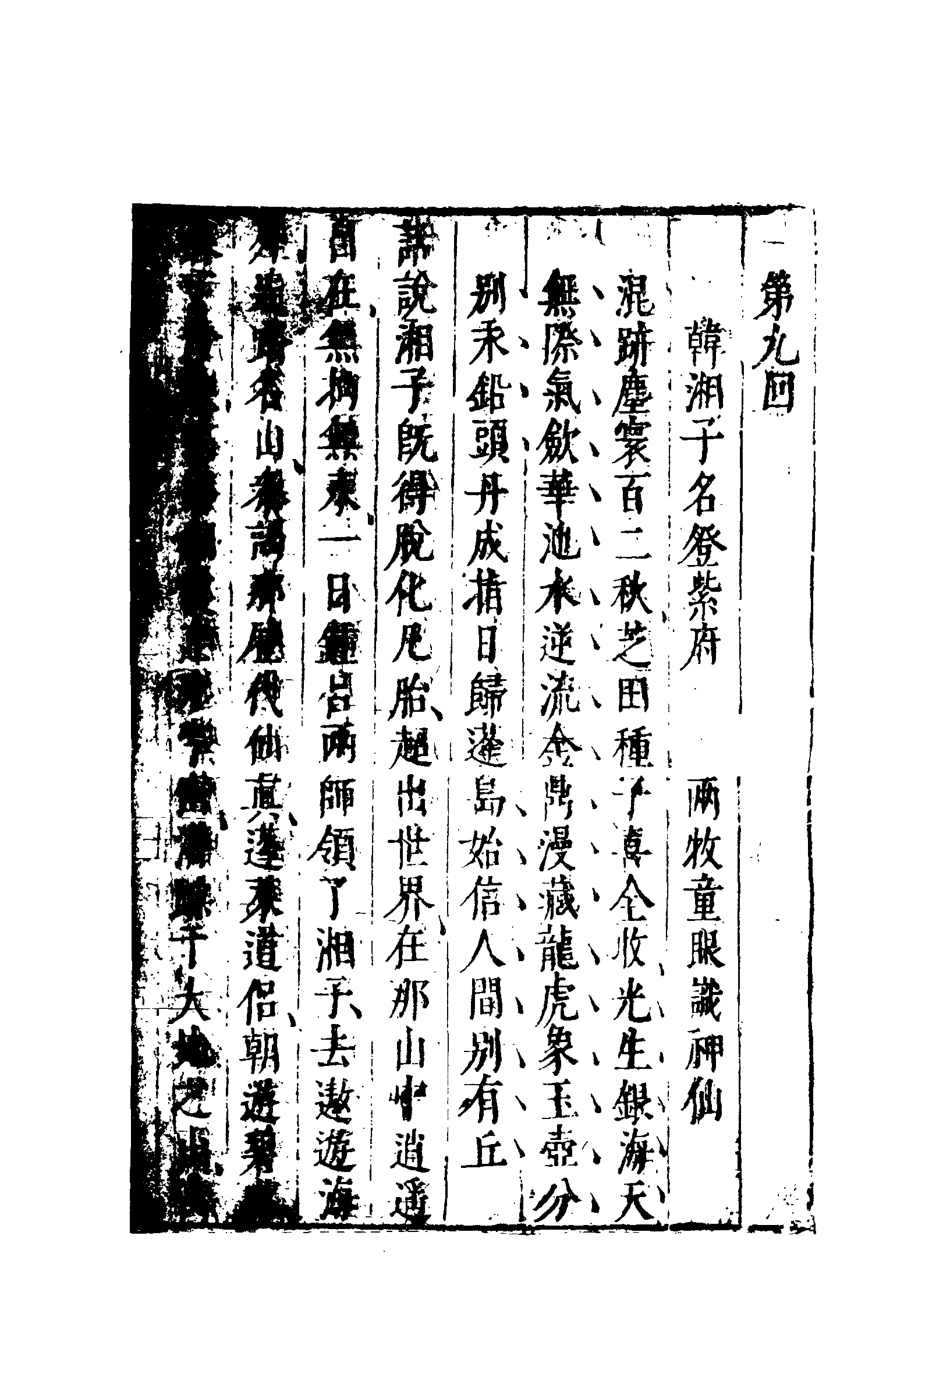 第九回
韓湘子名登紫府　兩牧童眼識神仙
混跡塵寰百二秋芝田種子喜全收光生銀海天
無際氣歛華池水逆流金鼎漫藏龍虎象玉壺分
別汞鉛頭丹成指日歸蓬島始信人間別有丘
話說湘子旣得脫化凡胎超出世界在那山中逍遥
自在無拘無束一日鍾呂兩師領了湘子去遨遊海
島遍踏名山參謁那歷代仙真蓬萊道侶朝遊碧
雷 千大地之山